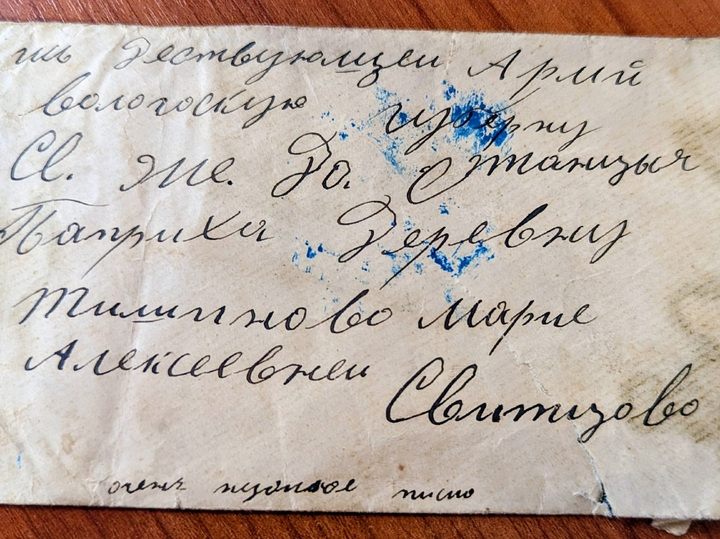 изь Дествующеи Армй
вологоскую губерну
Св. Же. До. Станцыя
Паприха Деревну
тилипново Марие
Алексеевнеи
Свитцово
очень нузонное писмо